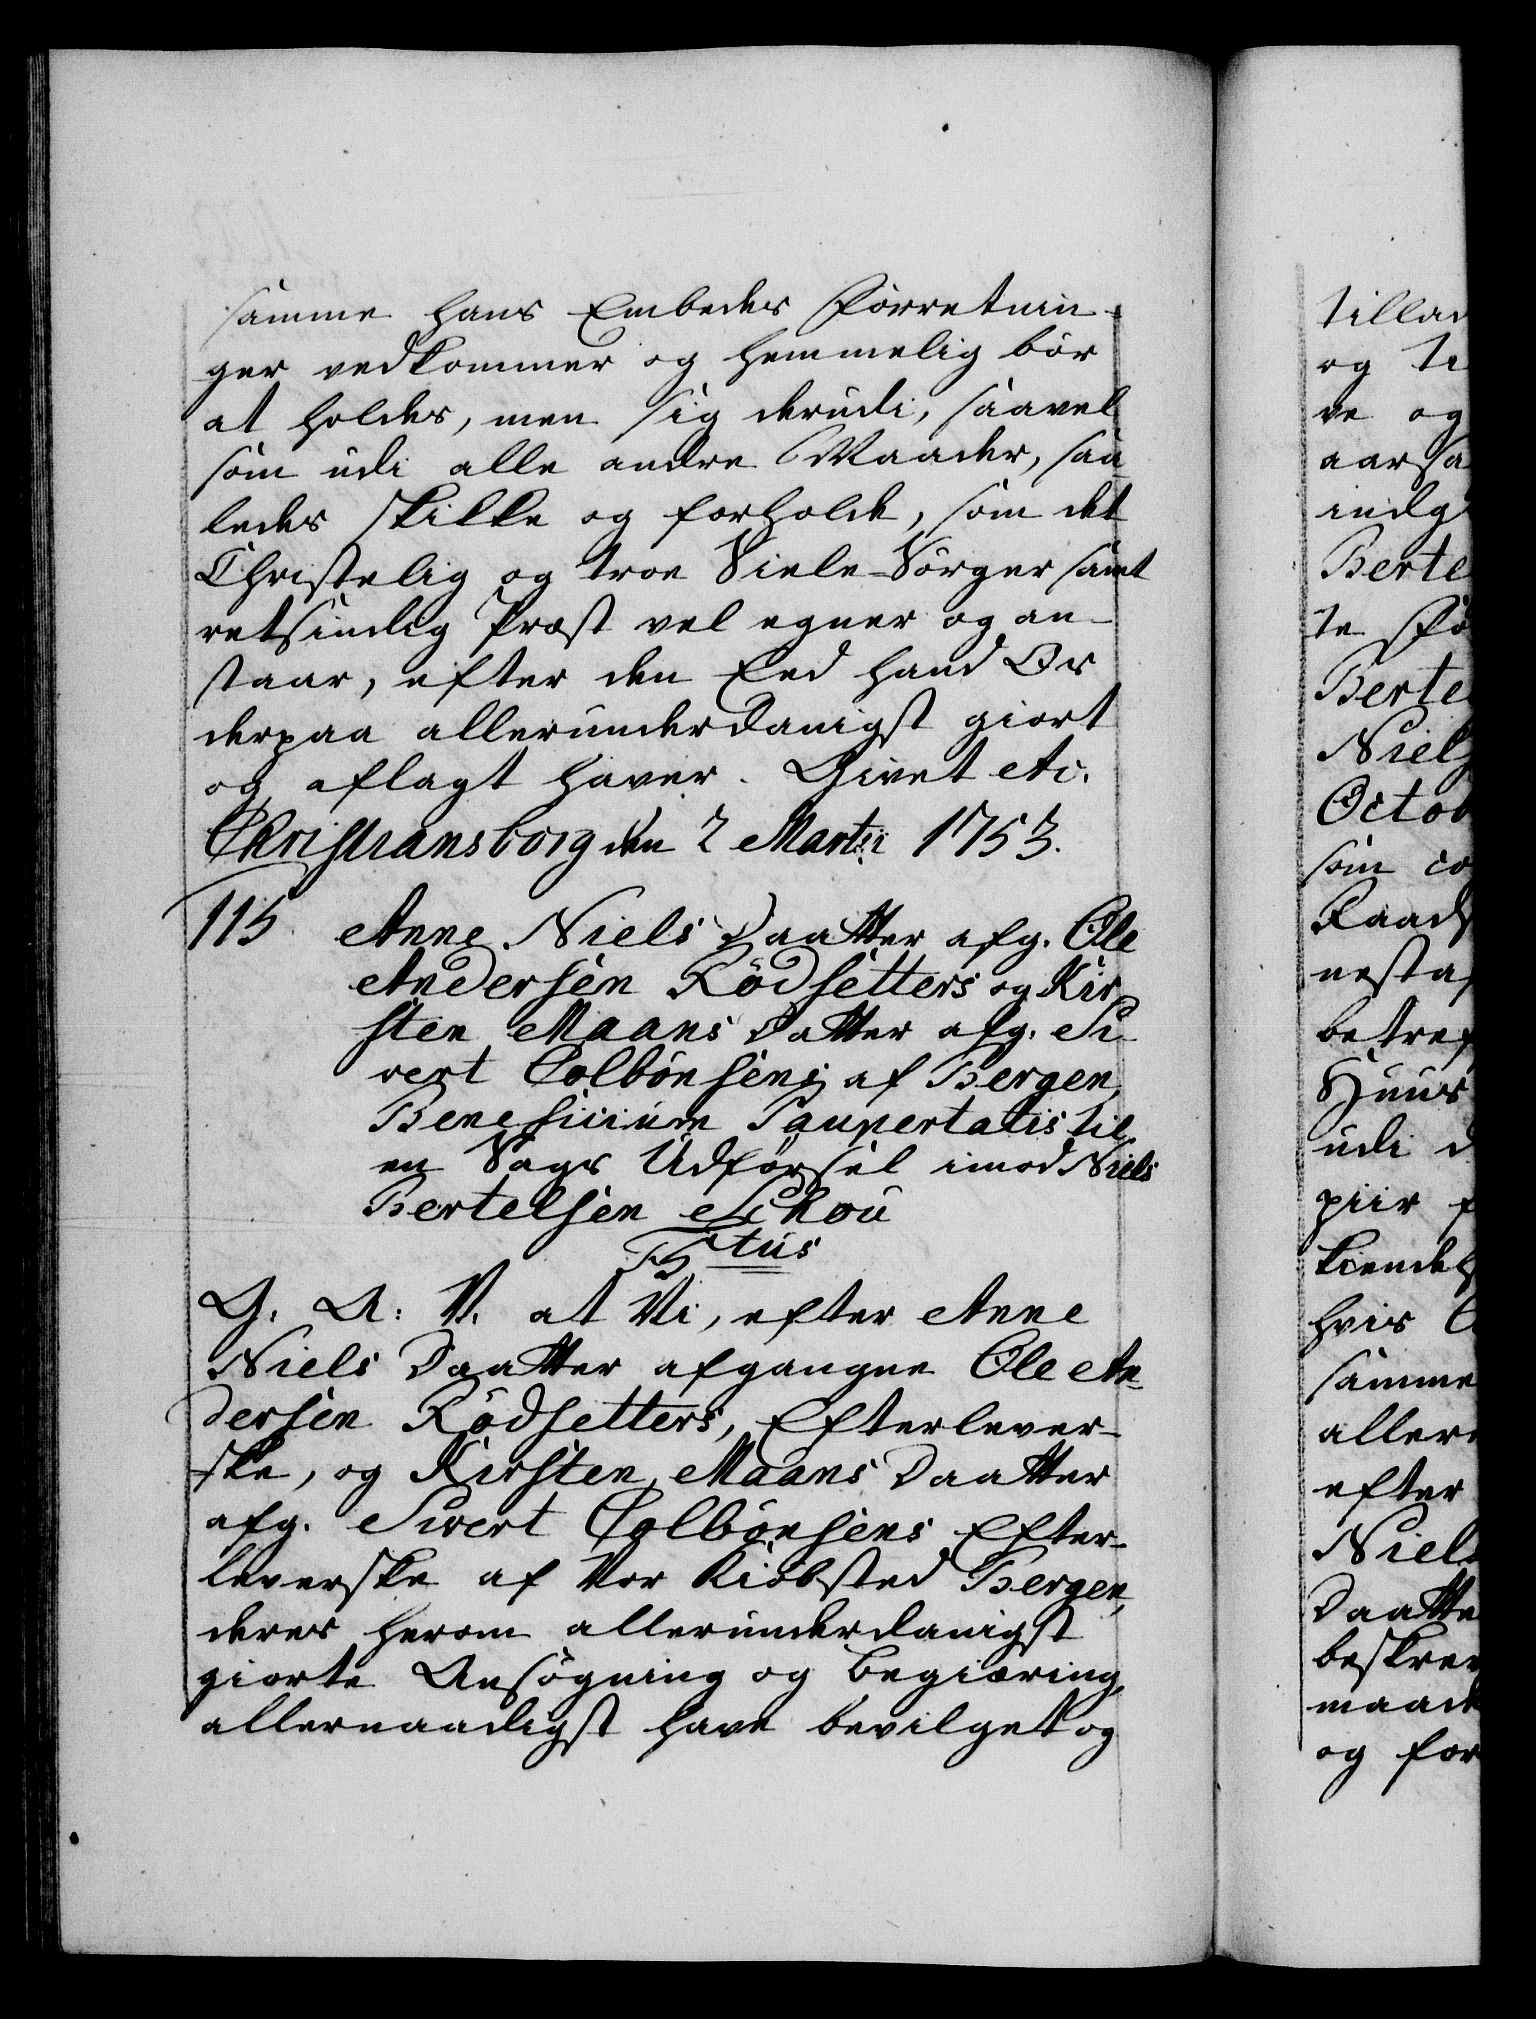 samme hans Embedes Forretnin-
ger vedkommer og hemmelig bør
at holdes, men sig derudi, saavel
som udi alle andre Maader, saa-
ledes skikke og forholde, som det
Christelig og troe Siele-Sørger samt
retsindig Præst vel egner og an-
staar, efter den Eed hand Os
derpaa allerunderdanigst giort
og aflagt haver. Givet etc.
Christiansborg den 2 Martii 1753.
115 Anne Niels Daatter afg. Ole
Andersen Rødsetters og Kir-
sten Maans Datter afg. Si-
vert Colbønsens af Bergen,
Beneficium Paupertatis til
en Sags Udførsel imod Niels
Bertelsen Schou
F5tus
G. A: V. at Vi, efter Anne
Niels Daatter afgangne Ole An-
dersen Rødsetters, Efterlever-
ske, og Kirsten Maans Daatter
afg. Sivert Colbønsens Efter-
leverske af Vor Kiøbsted Bergen,
deres herom allerunderdanigst
giorte Ansøgning og Begiæring,
allernaadigst have bevilget og
tillad
og ti
ve og
aarsa
indg
Berte
te Fo
Berte
Niels
Octob
som co
Raads
nesta
betref
Huus
udi d
piir f
kiendels
hvis
samme
aller
efter
Niels
Daatte
beskrev
maade
og for